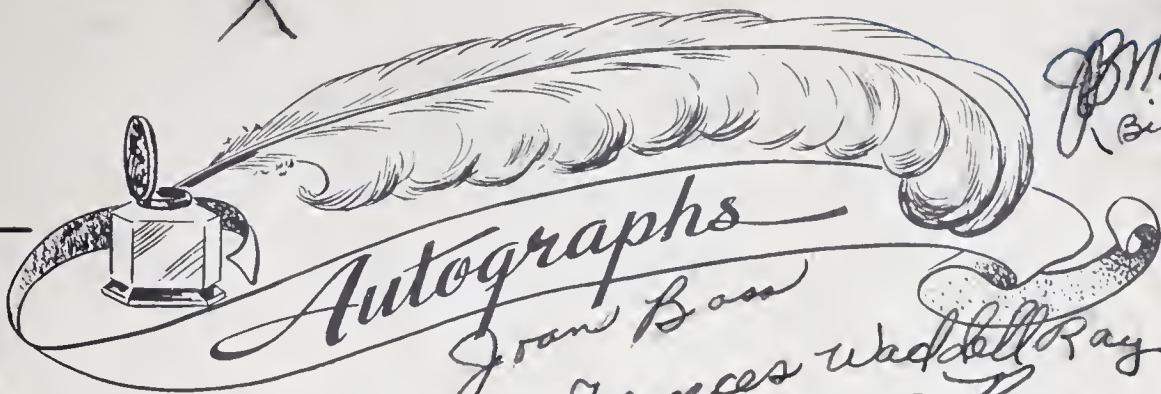 Autographs
Joan Bass
Frances Waddell Ray